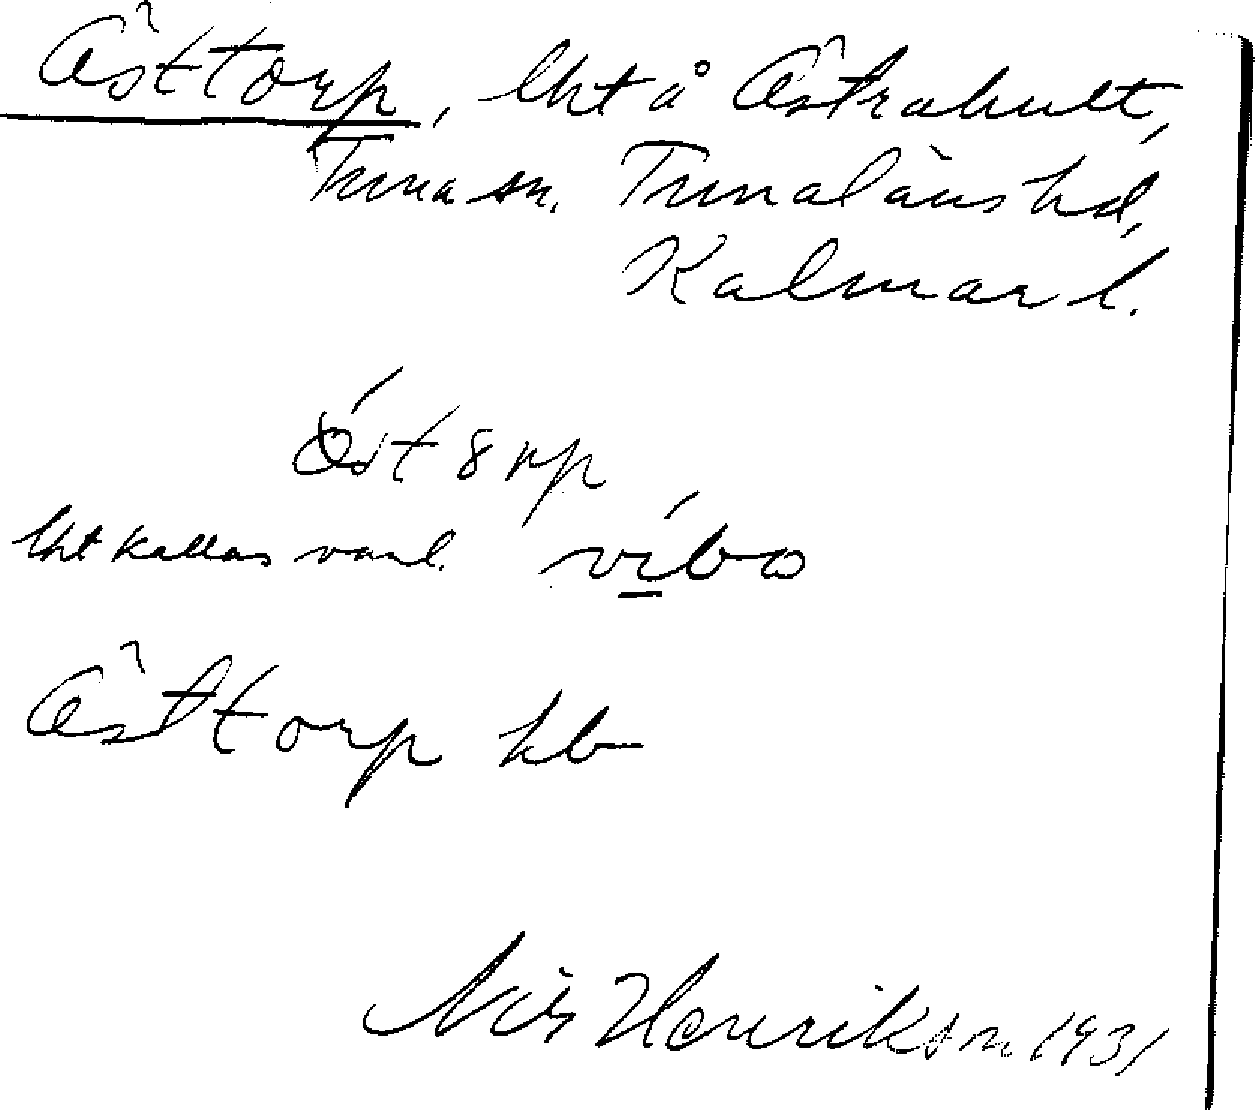 Östtorp, lht å Östrahult,
Tuna sn. Tunaläns hd,
Kalmar l.
lht kallas vanl. vibo
Östtorp kb
Nils Henrikson 1931